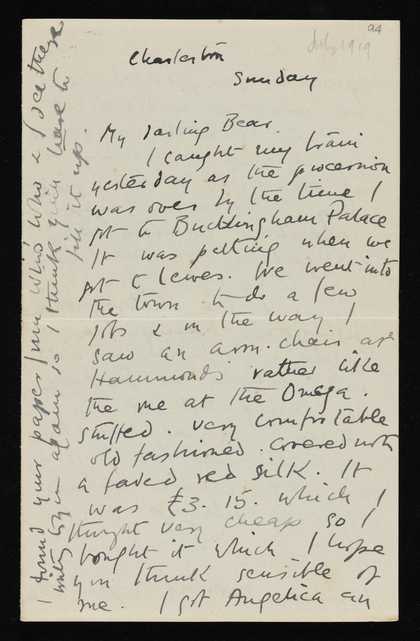 94
July 1919
Charleston
Sunday
My darling Bear.
I caught my train
yesterday as the procession
was over by the time I
got to Buckingham Palace
It was pelting when we
got to Lewes. We went into
the town to do a few
jobs & on the way I
saw an arm-chair at
Hammonds rather like
the one at the Omega.
stuffed. very comfortable
old fashioned. covered with
a faded red silk. It
was £3. 15. which I
thought very cheap so I
bought it which I hope
you think sensible of
me. I got Angelica an
I found your paper from Who's Who & I see these
written again so I think you have to
fill it up.